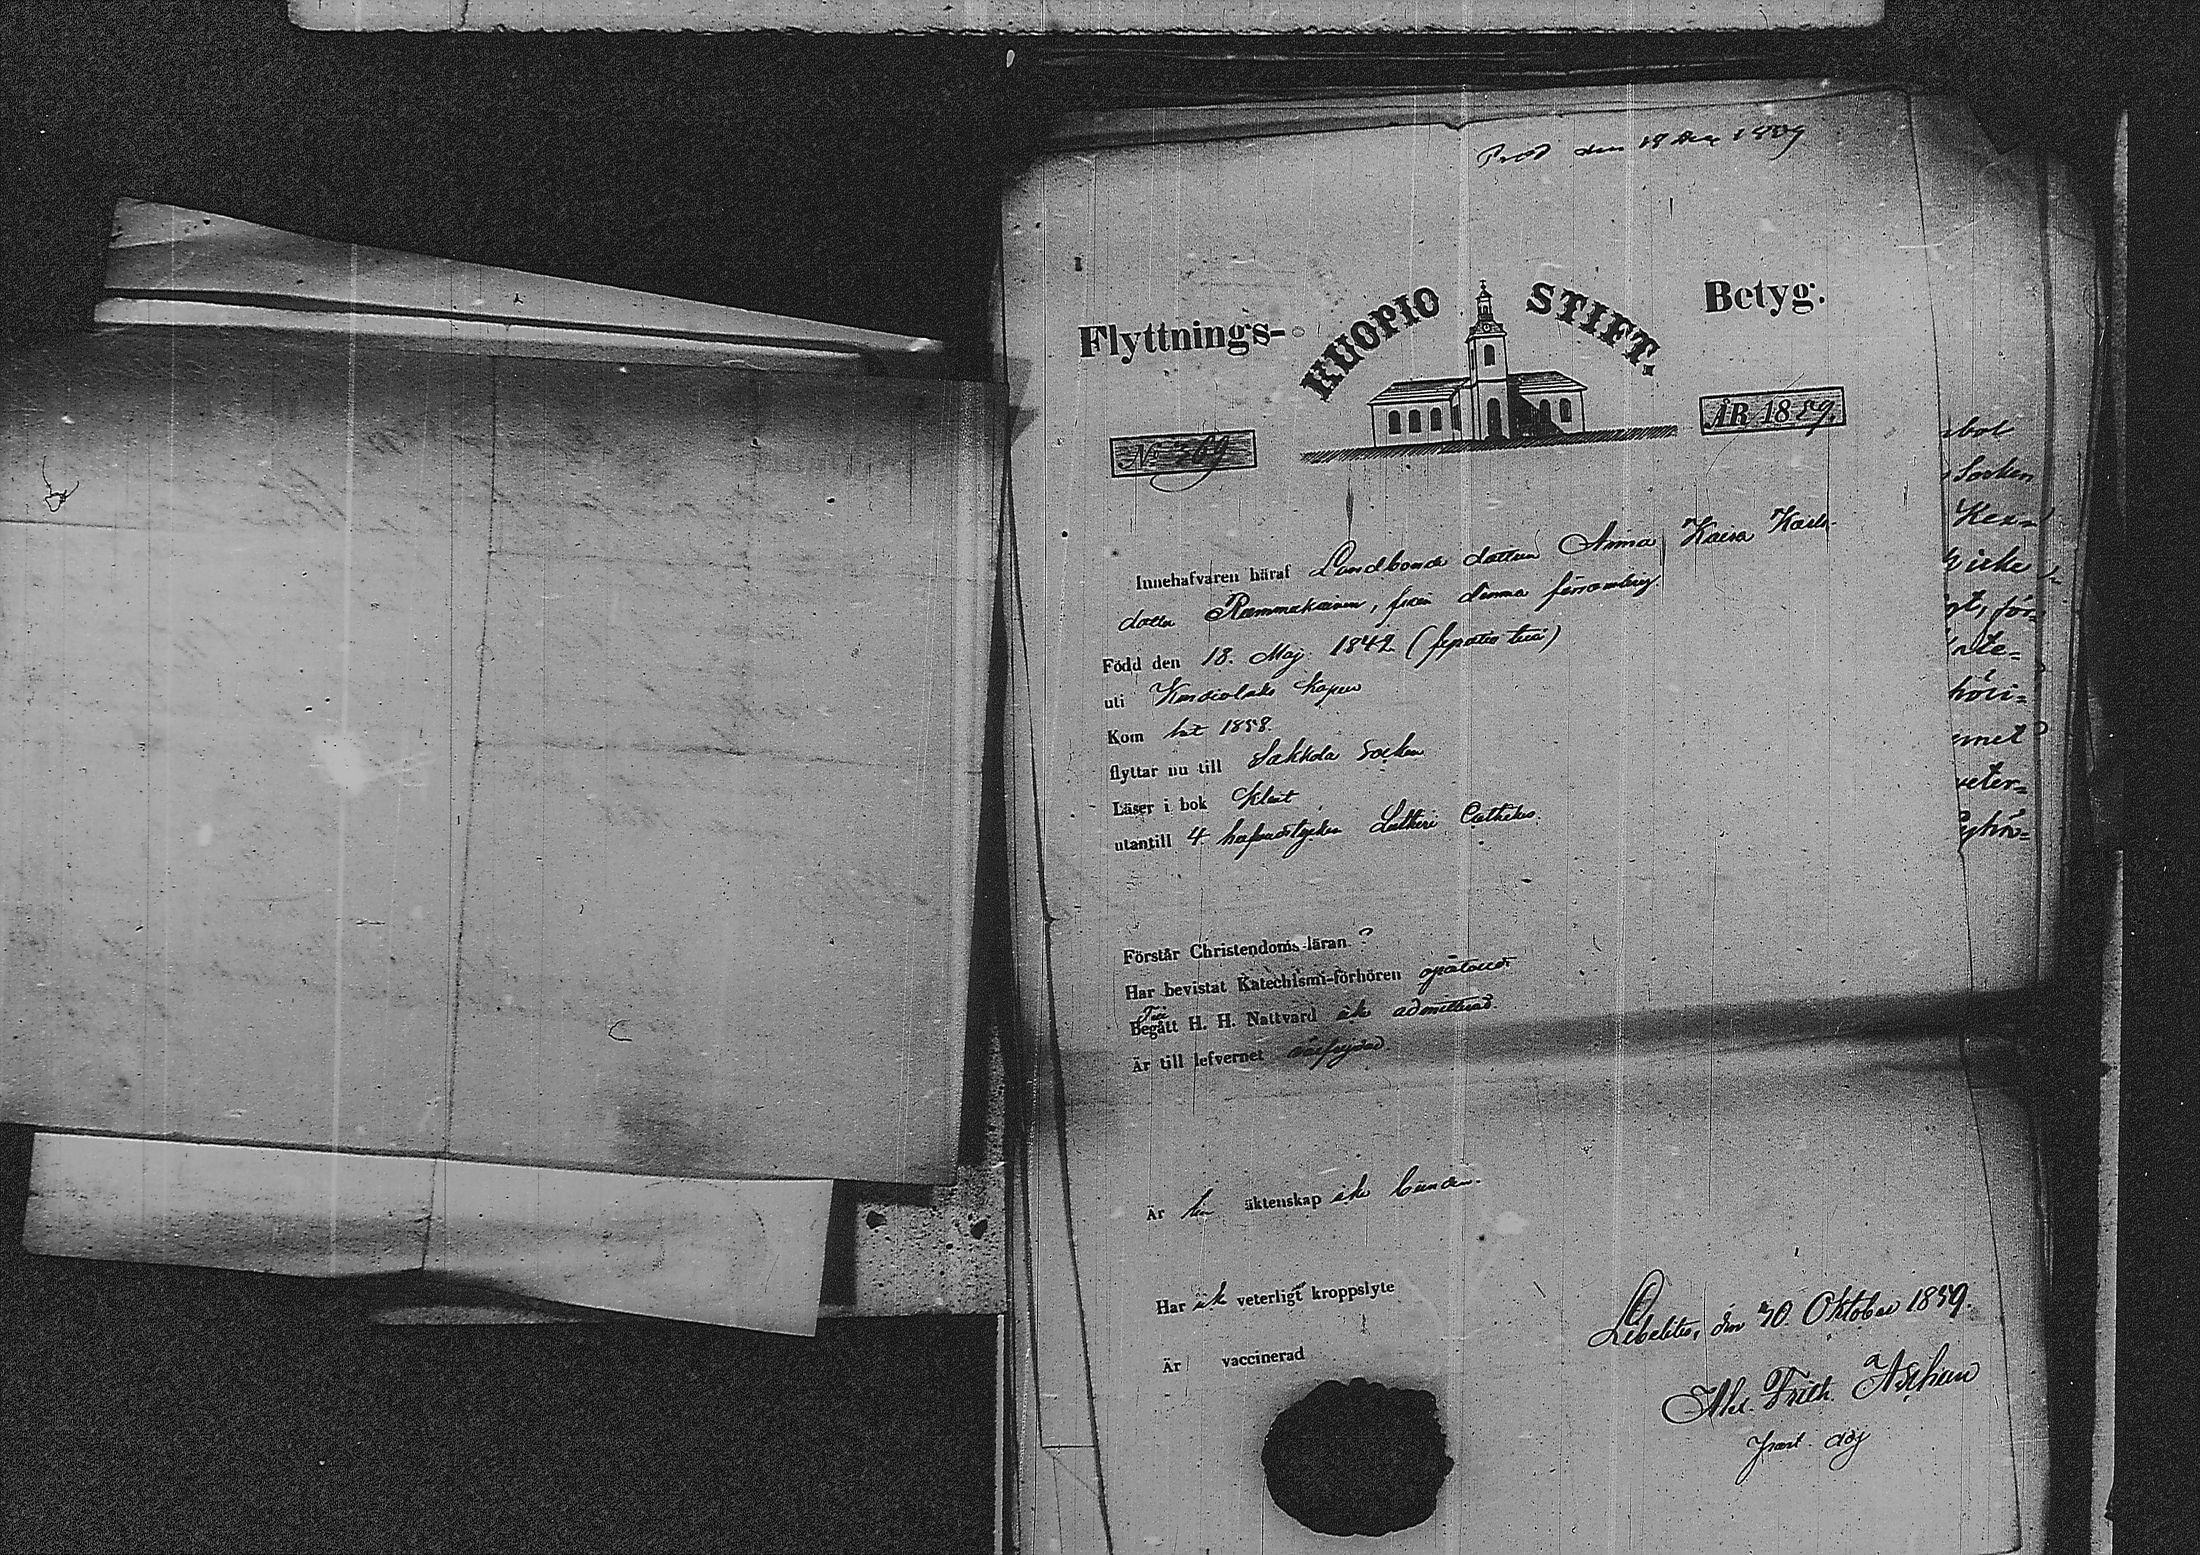 den 18 1859
Flyttnings- KUOPIO STIFT. Betyg.
ÅR 1859.
No 369
Innehafvaren häraf Landbonde dottren Anna Kaisa Karls-
dotter, från denna församling.
Född den 18. Maj 1842
uti Kapell
Kom hit 1858.
flyttar nu till Sakkola Socken
Läser i bok klent
utantill 4 hufvudstycken Lutheri Cathekes.
Förstår Christendoms-läran
Har bevistat Katechismi-förhören
Begått H. H. Nattvard icke admitterad
Är till lefvernet oförvitlig
Är hon äktenskap icke bunden.
Har icke veterligt kroppslyte
Är vaccinerad
Libelits, den 30 Oktober 1859.
Alex. Frith. Aschan
bol
Socken
Kex=
kirke
gt, för=
nte=
höri=
rnet
veter=